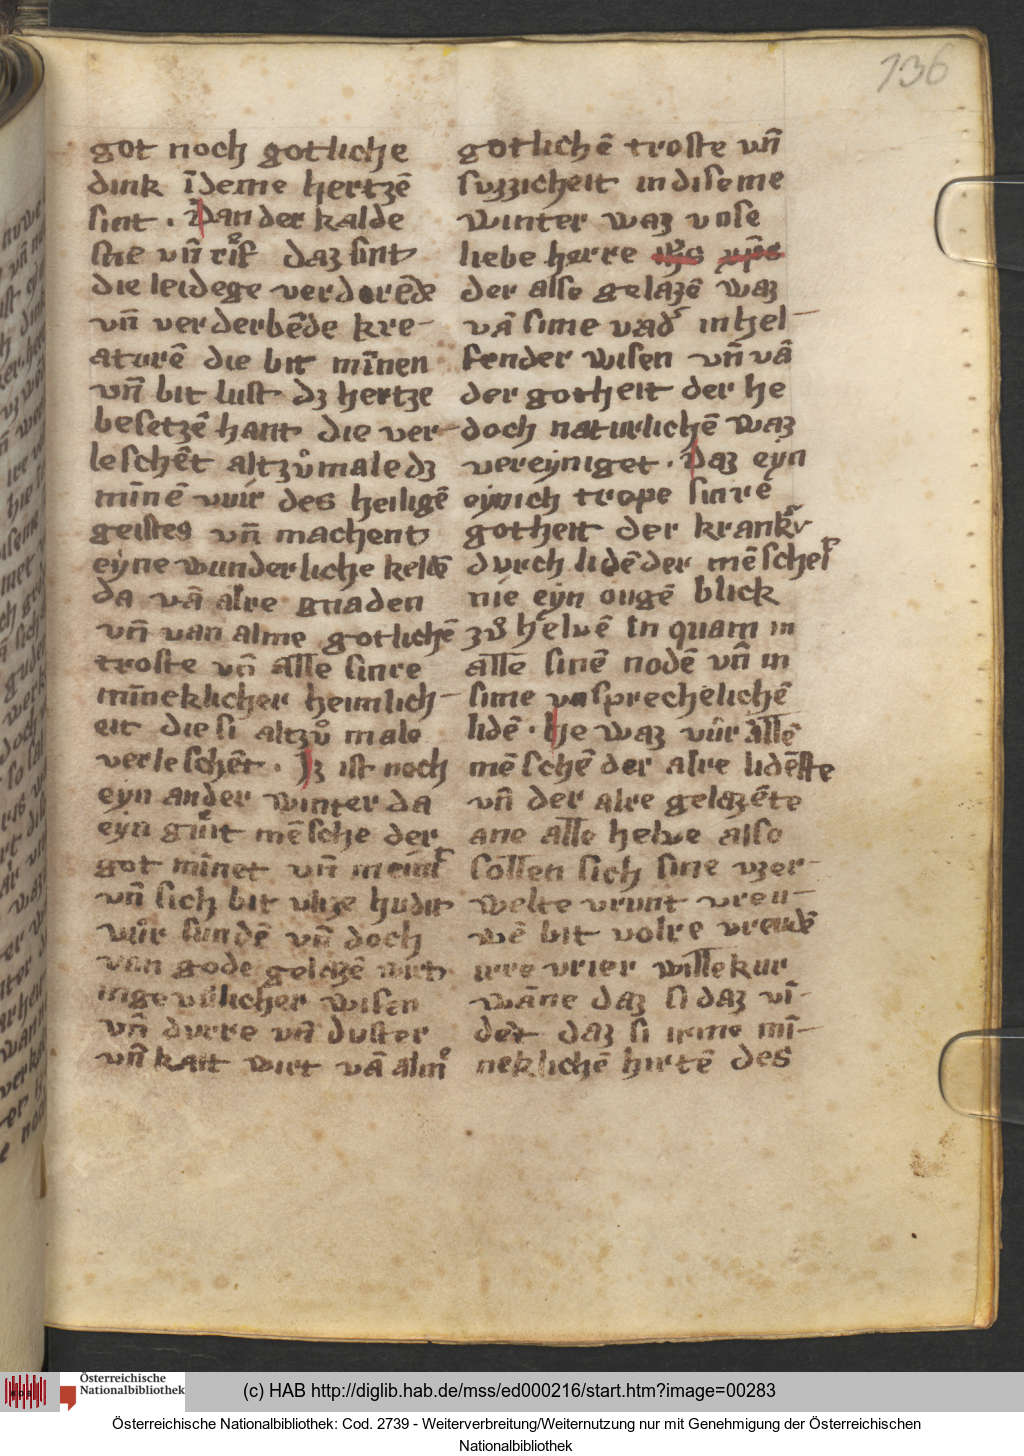 136
got noch gotliche
dink ī deme hertzē
sint . Dan der kalde
sne vn̄ rif daz sint
die leidege verdorēde
vn̄ verderbēde kre-
aturē die bit mīnen
vn̄ bit lust dz hertze
besetzē hant die ver-
leschēt altzůmale dz
mīnē vuir des heiligē
geistes vn̄ machent
eyne wunderliche keldē
da vā alre gnaden
vn̄ van alme gotlichē
troste vn̄ alle sinre
mīneklicher heimlich-
eit die si altzů male
verleschēt . Iz ist noch
eyn ander winter da
eyn gůt mēsche der
got mīnet vn̄ meint
vn̄ sich bit vlize hudit
vůr sundē vn̄ doch
van gode gelazē wirt
inge vůlicher wisen
vn̄ durre vn̄ duster
vn̄ kalt wirt vā alm
gotlichē troste vn̄
suzzicheit in diseme
winter waz vnse
liebe herre ihs xps
der also gelazē waz
vā sime vad' in hel-
fender wisen vn̄ vā
der gotheit der he
doch naturlichē waz
vereyniget . Daz eyn
eynich trope sinre
gotheit der krankr
durch lidēder mēscheit
nie eyn ougē blick
zů helue in quam in
alle sinē nodē vn̄ in
sime vnsprechelichē
lidē . he waz vůr alle
mēschē der alre lidēste
vn̄ der alre gelazēte
ane alle helue also
sollen sich sine vzer-
welte vrunt vreu-
wē bit volre vreudē
irre vrier willekur
wāne daz si daz vī-
det daz si irme mī-
neklichē hirtē des
Österreichische
Nationalbibliothek
(c) HAB http://diglib.hab.de/mss/ed000216/start.htm?image=00283
Österreichische Nationalbibliothek: Cod. 2739 - Weiterverbreitung/Weiternutzung nur mit Genehmigung der Österreichischen
Nationalbibliothek